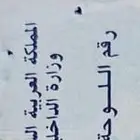 المملكة العربية
وزارة
رقم اللوحة